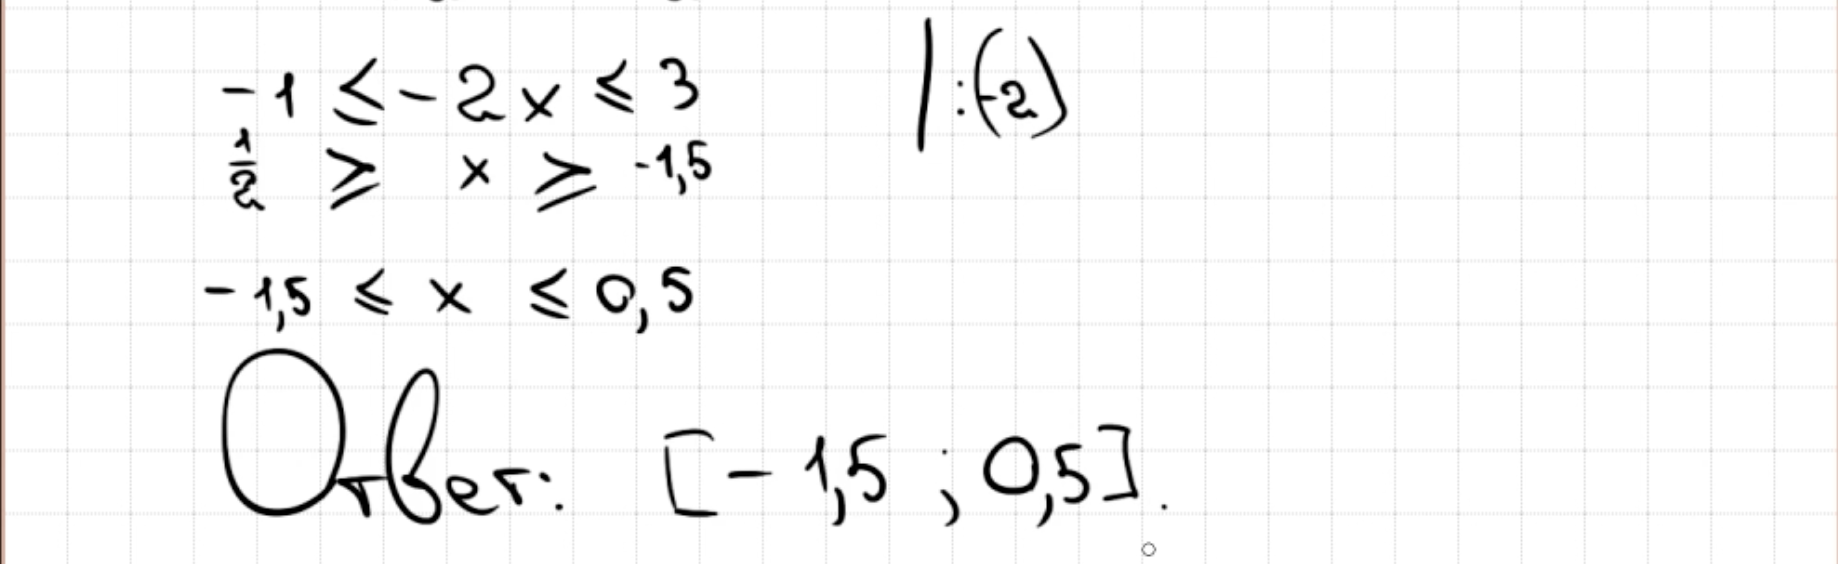 -1 ⩽ -2x ⩽ 3 | :(-2)
1/2 ⩾ x ⩾ -1,5
-1,5 ⩽ x ⩽ 0,5
Ответ: [-1,5 ; 0,5].